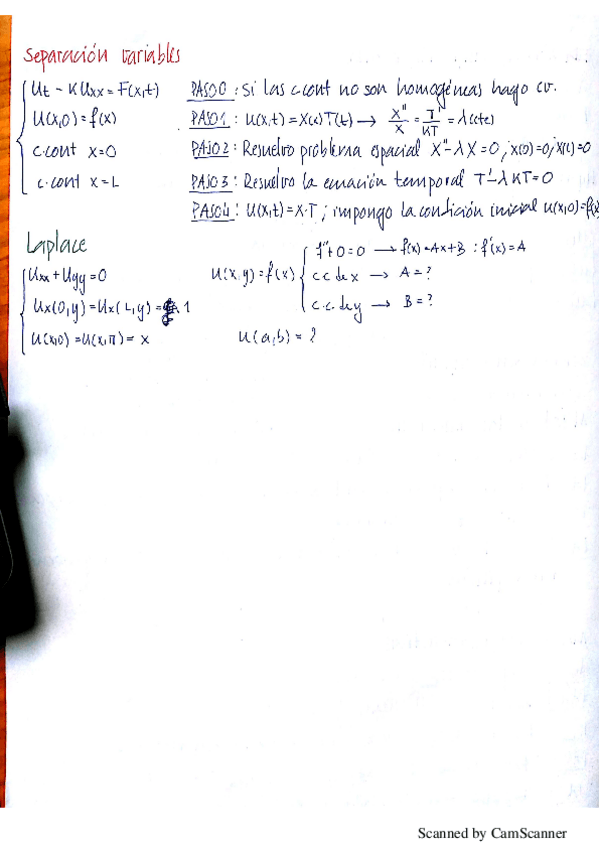 Separación variables
Ut - KUxx = F(x,t)
U(x,0) = f(x)
c.cont x=0
c.cont x=L
PASO 0: Si las c.cont no son homogéneas hago cv.
PASO 1: U(x,t) = X(x)T(t) → X''/X = T'/KT = λ (cte)
PASO 2: Resuelvo problema espacial X''-λX=0; X(0)=0; X(L)=0
PASO 3: Resuelvo la ecuación temporal T'-λKT=0
PASO 4: U(x,t)=X·T; impongo la condición inicial u(x,0)=f(x
Laplace
Uxx + Uyy = 0
Ux(0,y) = Ux(L,y) = 1
U(x,0) = U(x,π) = x
U(x,y) = f(x)
f''+0=0 → f(x)=Ax+B : f'(x)=A
c.c. de x → A=?
c.c. de y → B=?
U(a,b) = ?
Scanned by CamScanner